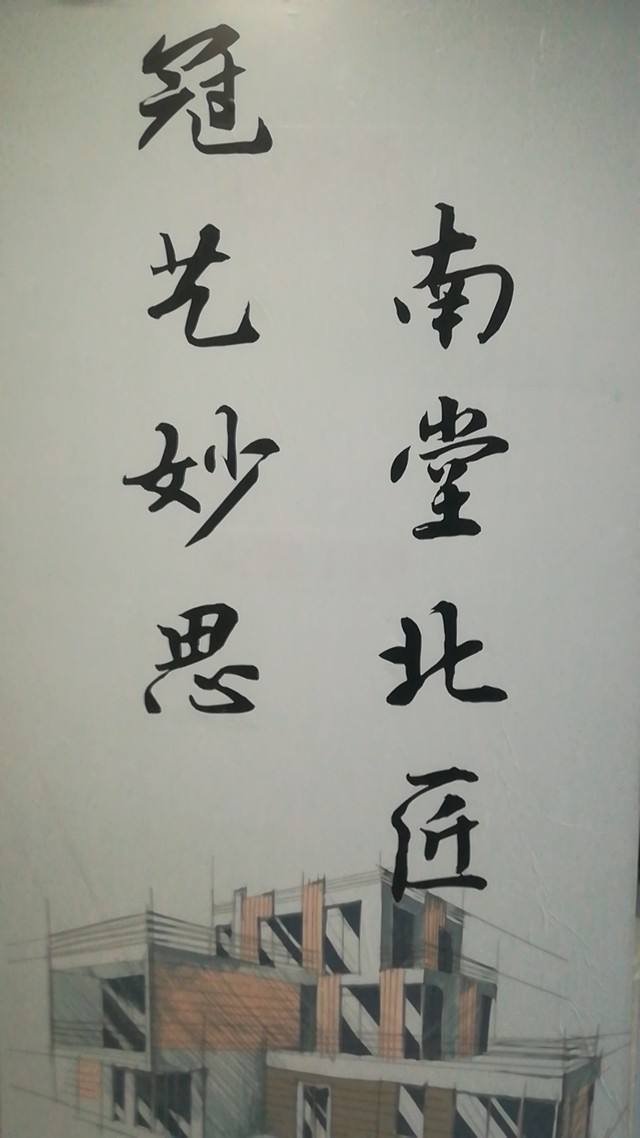 冠艺妙思
南堂北匠